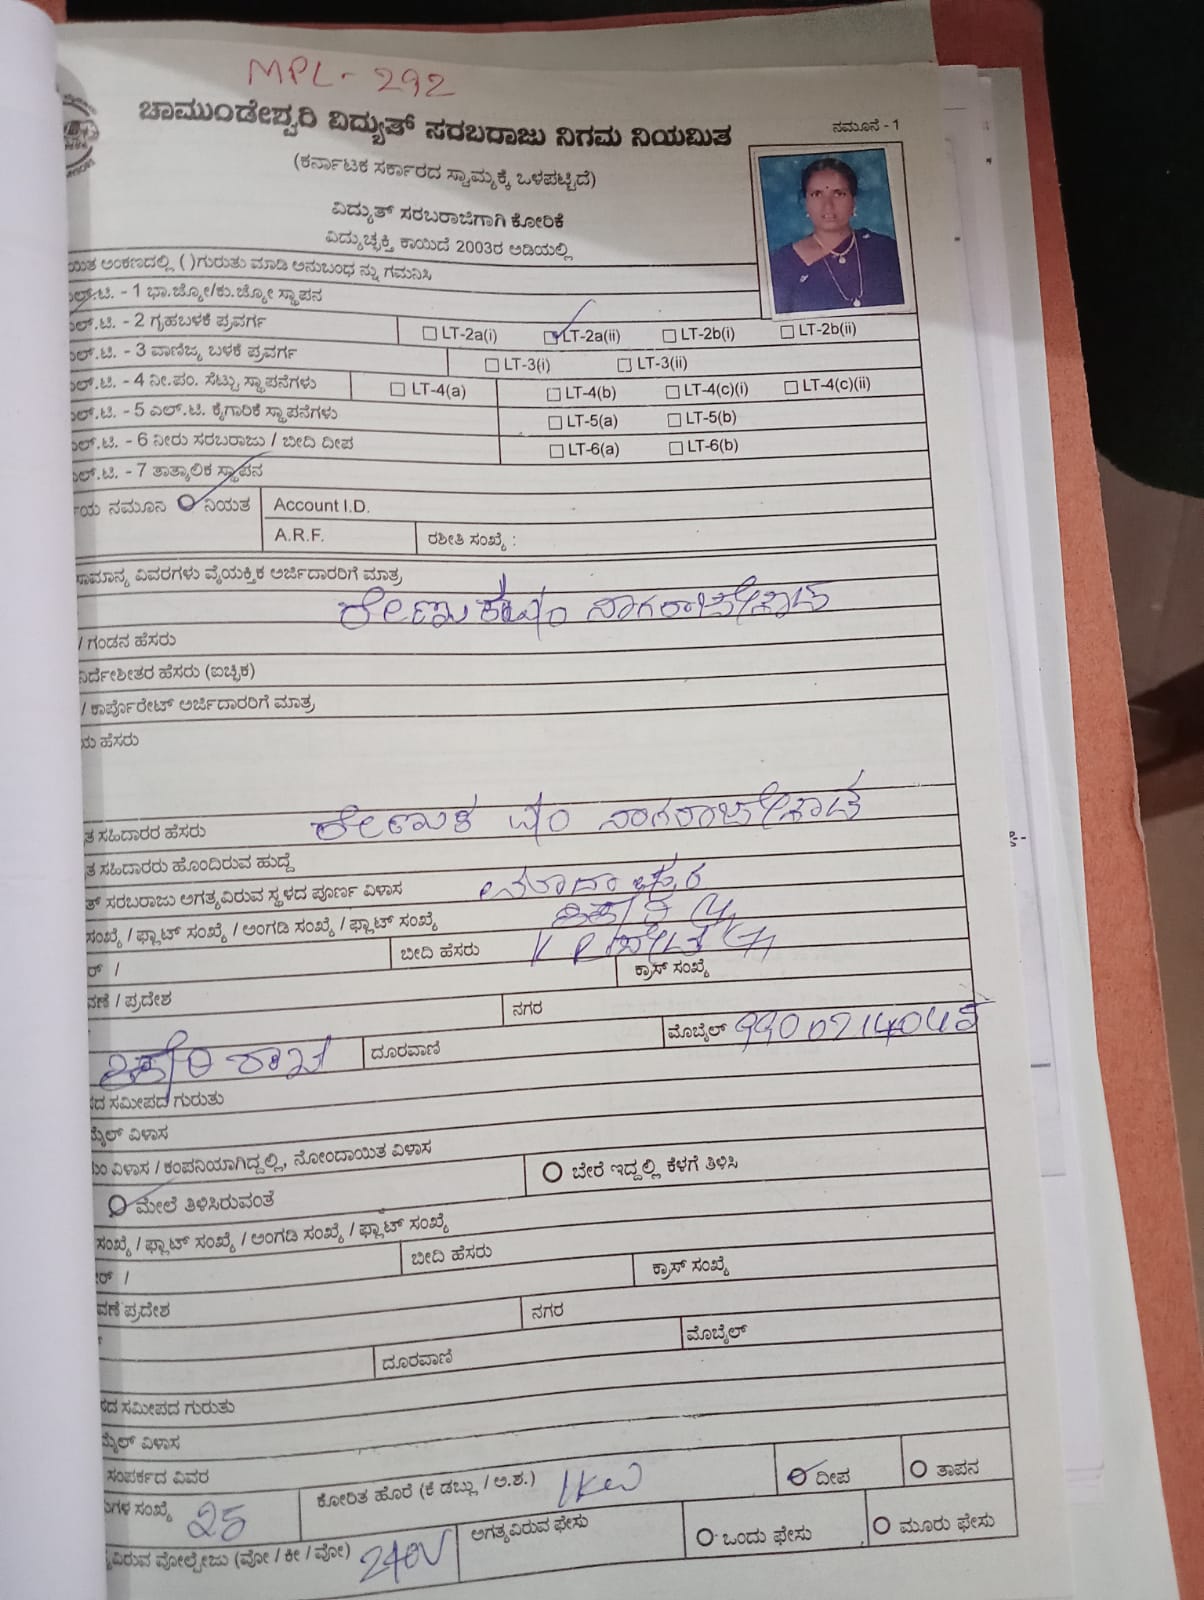 MPL - 292
ಚಾಮುಂಡೇಶ್ವರಿ ವಿದ್ಯುತ್ ಸರಬರಾಜು ನಿಗಮ ನಿಯಮಿತ
ನಮೂನೆ - 1
(ಕರ್ನಾಟಕ ಸರ್ಕಾರದ ಸ್ವಾಮ್ಯಕ್ಕೆ ಒಳಪಟ್ಟಿದೆ)
ವಿದ್ಯುತ್ ಸರಬರಾಜಿಗಾಗಿ ಕೋರಿಕೆ
ವಿದ್ಯುಚ್ಛಕ್ತಿ ಕಾಯಿದೆ 2003ರ ಅಡಿಯಲ್ಲಿ
ಅಂಕಣದಲ್ಲಿ ( )ಗುರುತು ಮಾಡಿ ಅನುಬಂಧ ನ್ನು ಗಮನಿಸಿ
ಲ್.ಟಿ. - 1 ಭಾ.ಜ್ಯೋ/ಕು.ಜ್ಯೋ ಸ್ಥಾಪನ
ಲ್.ಟಿ. - 2 ಗೃಹಬಳಕೆ ಪ್ರವರ್ಗ LT-2a(i) LT-2a(ii) LT-2b(i) LT-2b(ii)
ಲ್.ಟಿ. - 3 ವಾಣಿಜ್ಯ ಬಳಕೆ ಪ್ರವರ್ಗ LT-3(i) LT-3(ii)
ಲ್.ಟಿ. - 4 ನೀ.ಪಂ. ಸೆಟ್ಟು ಸ್ಥಾಪನೆಗಳು LT-4(a) LT-4(b) LT-4(c)(i) LT-4(c)(ii)
ಲ್.ಟಿ. - 5 ಎಲ್.ಟಿ. ಕೈಗಾರಿಕೆ ಸ್ಥಾಪನೆಗಳು LT-5(a) LT-5(b)
ಲ್.ಟಿ. - 6 ನೀರು ಸರಬರಾಜು / ಬೀದಿ ದೀಪ LT-6(a) LT-6(b)
ಲ್.ಟಿ. - 7 ತಾತ್ಕಾಲಿಕ ಸ್ಥಾಪನ
ಯ ನಮೂನ ನಿಯತ Account I.D.
A.R.F. ರಶೀತಿ ಸಂಖ್ಯೆ :
ಸಾಮಾನ್ಯ ವಿವರಗಳು ವೈಯಕ್ತಿಕ ಅರ್ಜಿದಾರರಿಗೆ ಮಾತ್ರ
ರೇಣುಕ
/ ಗಂಡನ ಹೆಸರು
ನಿರ್ದೇಶಿತರ ಹೆಸರು (ಐಚ್ಛಿಕ)
/ ಕಾರ್ಪೊರೇಟ್ ಅರ್ಜಿದಾರರಿಗೆ ಮಾತ್ರ
ಯ ಹೆಸರು
ತ ಸಹಿದಾರರ ಹೆಸರು ರೇಣುಕ
ತ ಸಹಿದಾರರು ಹೊಂದಿರುವ ಹುದ್ದೆ
ತ್ ಸರಬರಾಜು ಅಗತ್ಯವಿರುವ ಸ್ಥಳದ ಪೂರ್ಣ ವಿಳಾಸ
ಸಂಖ್ಯೆ / ಫ್ಲಾಟ್ ಸಂಖ್ಯೆ / ಅಂಗಡಿ ಸಂಖ್ಯೆ / ಫ್ಲಾಟ್ ಸಂಖ್ಯೆ
ರ್ / ಬೀದಿ ಹೆಸರು ಕ್ರಾಸ್ ಸಂಖ್ಯೆ
ವಣೆ / ಪ್ರದೇಶ ನಗರ
ದೂರವಾಣಿ ಮೊಬೈಲ್
ದ ಸಮೀಪದ ಗುರುತು
ಮೈಲ್ ವಿಳಾಸ
ವಿಳಾಸ / ಕಂಪನಿಯಾಗಿದ್ದಲ್ಲಿ, ನೋಂದಾಯಿತ ವಿಳಾಸ
ಮೇಲೆ ತಿಳಿಸಿರುವಂತೆ ಬೇರೆ ಇದ್ದಲ್ಲಿ ಕೆಳಗೆ ತಿಳಿಸಿ
ಸಂಖ್ಯೆ / ಫ್ಲಾಟ್ ಸಂಖ್ಯೆ / ಅಂಗಡಿ ಸಂಖ್ಯೆ / ಫ್ಲಾಟ್ ಸಂಖ್ಯೆ
ರ್ / ಬೀದಿ ಹೆಸರು ಕ್ರಾಸ್ ಸಂಖ್ಯೆ
ವಣೆ ಪ್ರದೇಶ ನಗರ
ದೂರವಾಣಿ ಮೊಬೈಲ್
ದ ಸಮೀಪದ ಗುರುತು
ಮೈಲ್ ವಿಳಾಸ
ಸಂಪರ್ಕದ ವಿವರ
ಗಳ ಸಂಖ್ಯೆ 25 ಕೋರಿತ ಹೊರೆ (ಕೆ ಡಬ್ಲು / ಅ.ಶ.) 1kw ದೀಪ ತಾಪನ
ವಿರುವ ವೋಲ್ಟೇಜು (ವೋ / ಕೀ / ವೋ) 240V ಅಗತ್ಯವಿರುವ ಫೇಸು ಒಂದು ಫೇಸು ಮೂರು ಫೇಸು